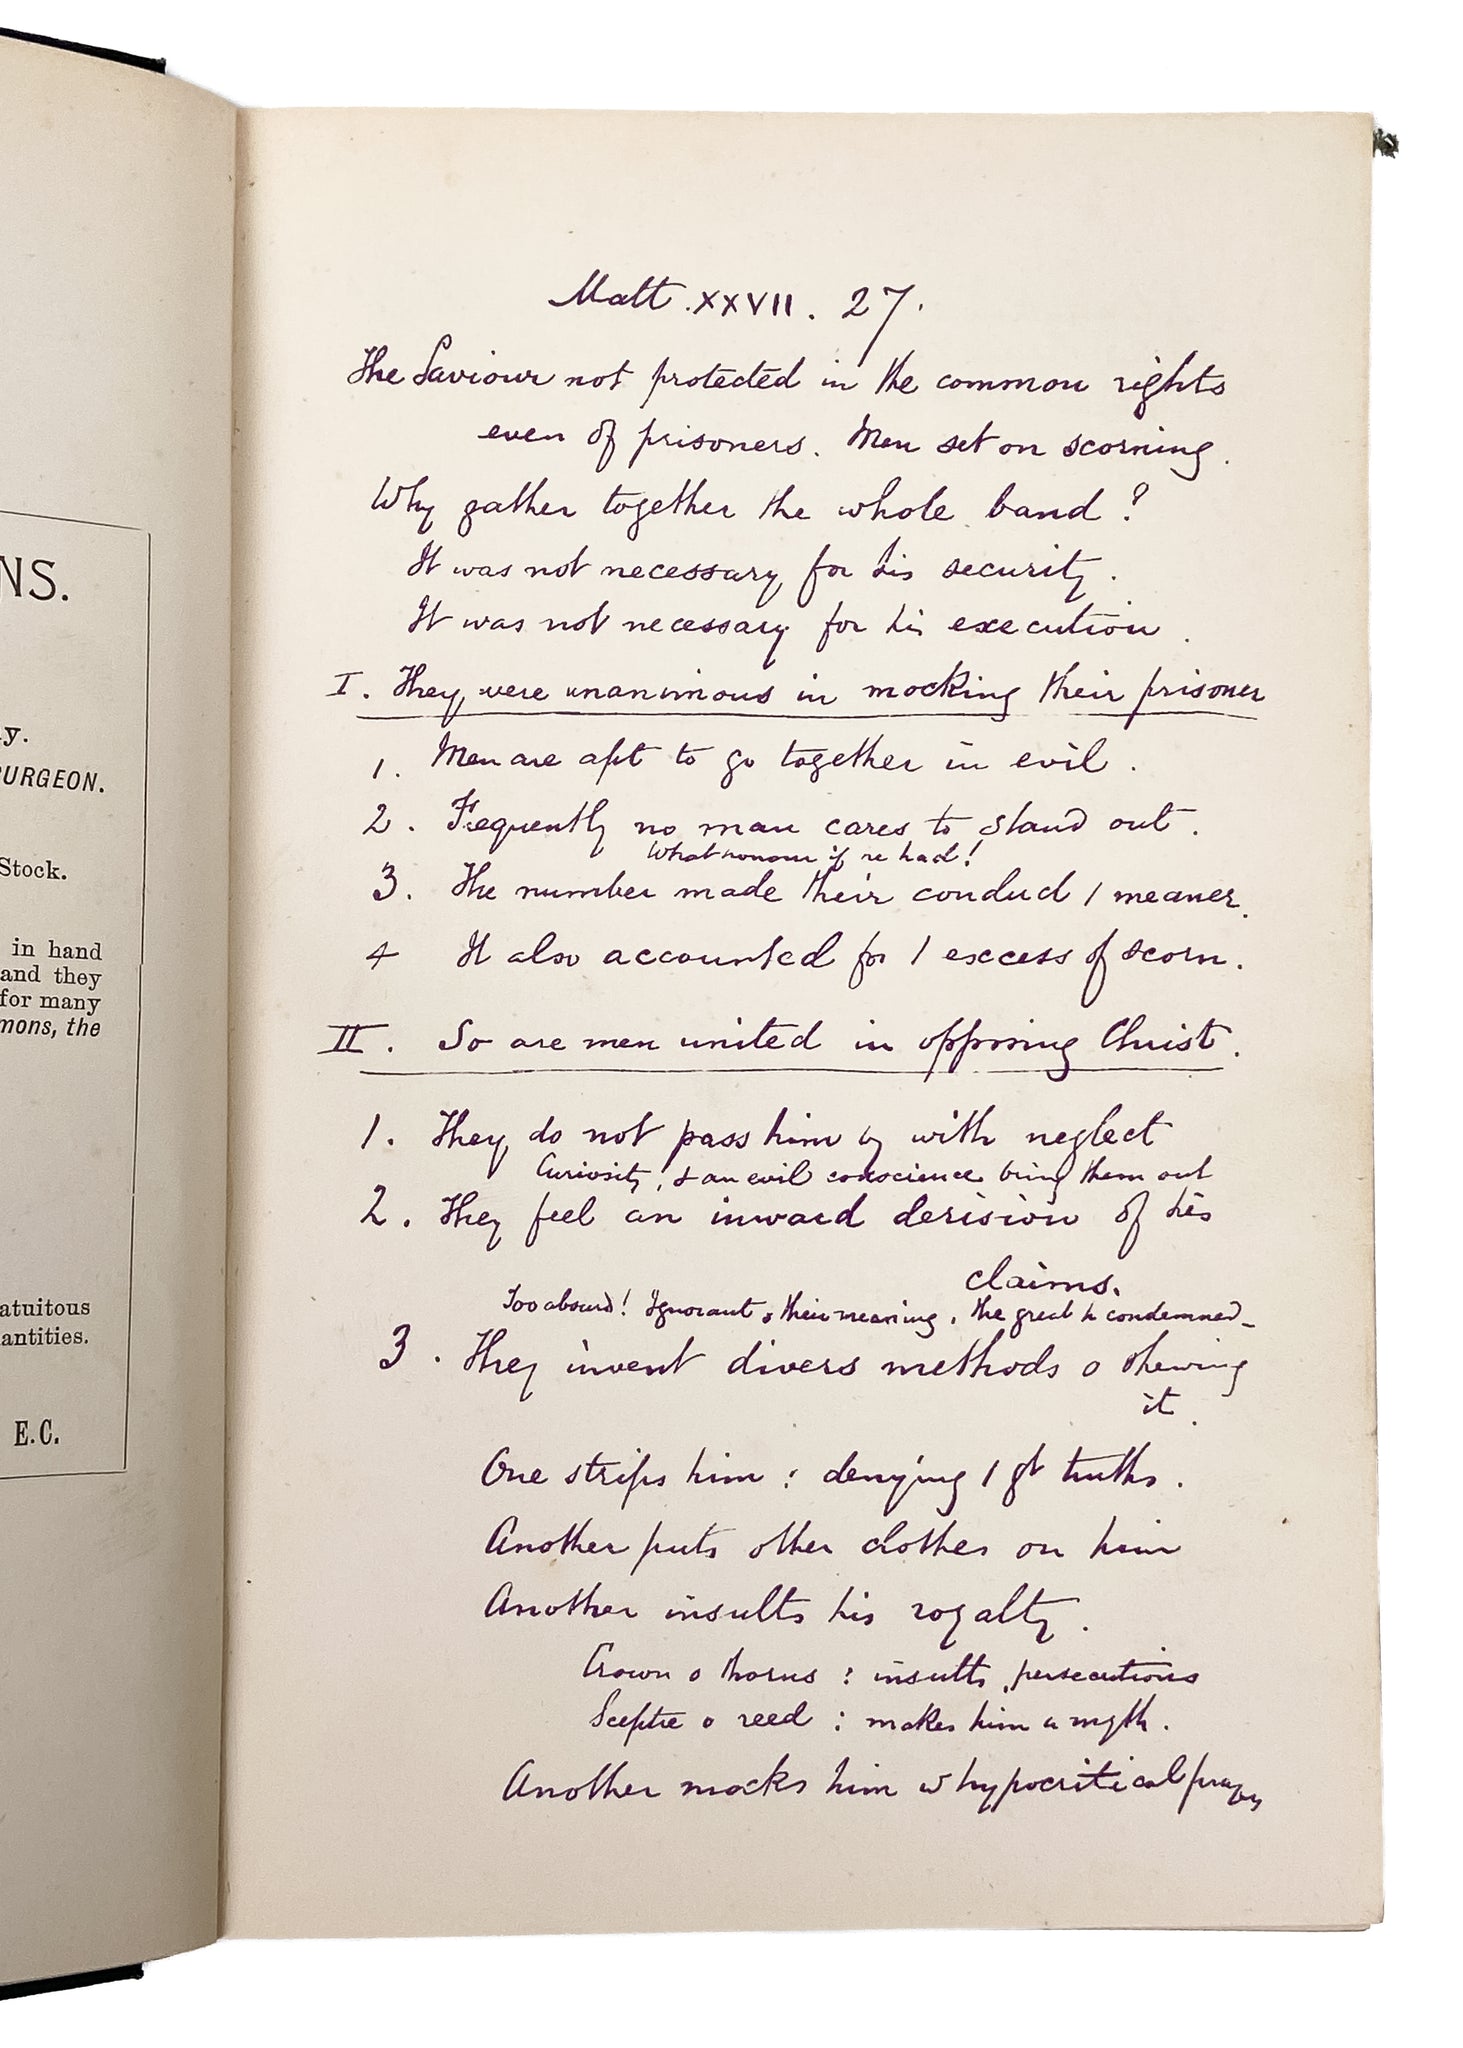 NS.
y.
URGEON.
Stock.
in hand
and they
for many
mons, the
atuitous
antities.
E.C.
Matt. XXVII. 27.
The Saviour not protected in the common rights
even of prisoners. Men set on scorning.
Why gather together the whole band?
It was not necessary for his security.
It was not necessary for his execution.
I. They were unanimous in mocking their prisoner
1. Men are apt to go together in evil.
2. Frequently no man cares to stand out.
What honour if he had!
3. The number made their conduct / meaner.
4 It also accounted for / excess of scorn.
II. So are men united in opposing Christ.
1. They do not pass him by with neglect
Curiosity, & an evil conscience bring them out
2. They feel an inward derision of his
claims.
Too absurd! Ignorant o their meaning. The great condemned_
3. They invent divers methods o shewing
it.
One strips him: denying / gt truths.
Another puts other clothes on him
Another insults his royalty.
Crown o thorns: insults, persecutions
Sceptre o reed: makes him a myth.
Another mocks him w hypocritical